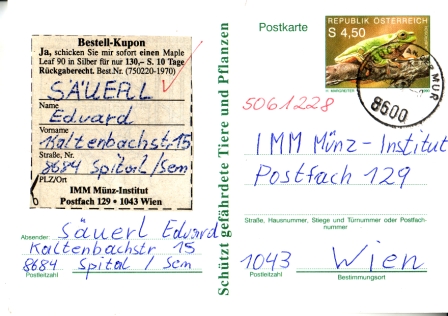 Bestell-Kupon
Ja, schicken Sie mir sofort einen Maple
Leaf 90 in Silber für nur 130,– S. 10 Tage
Rückgaberecht. Best.Nr. (750220-1970)
SÄUERL
Name
Eduard
Vorname
Kaltenbachstr. 15
Straße, Nr.
8684 Spital/Sem
PLZ/Ort
IMM Münz-Institut
Postfach 129 • 1043 Wien
Absender: Säuerl Eduard
Kaltenbachstr 15
8684 Spital / Sem
Postleitzahl
Schützt gefährdete Tiere und Pflanzen
Postkarte
REPUBLIK ÖSTERREICH
S 4,50
MUR
8600
5061228
IMM Münz-Institut
Postfach 129
Straße, Hausnummer, Stiege und Türnummer oder Postfach-
nummer
1043 Wien
Postleitzahl Bestimmungsort